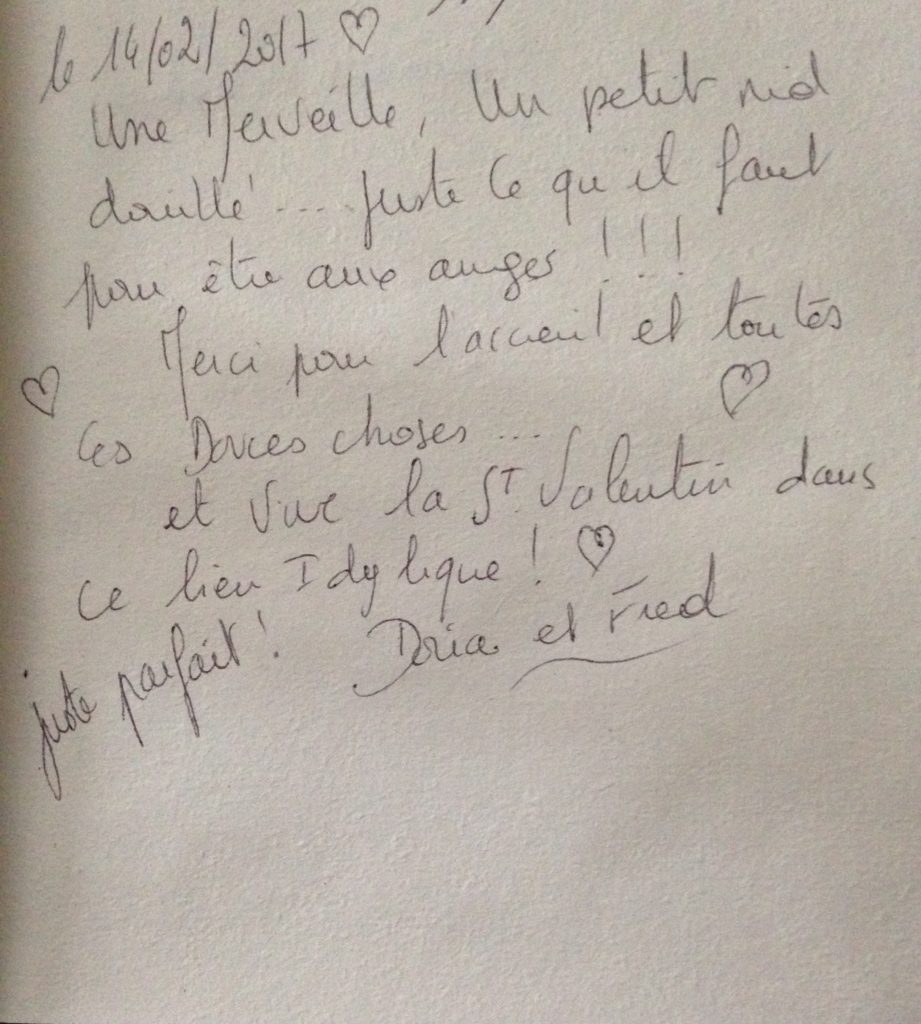 le 14/02/2017 ♡
Une Merveille, Un petit nid
douillé.... Juste ce qu'il faut
pour être aux anges !!!
Merci pour l'accueil et toutes
♡ ♡
Ces Douces choses...
et Vive la ST Valentin dans
Ce lieu Idylique ! ♡
juste parfait ! Doria et Fred